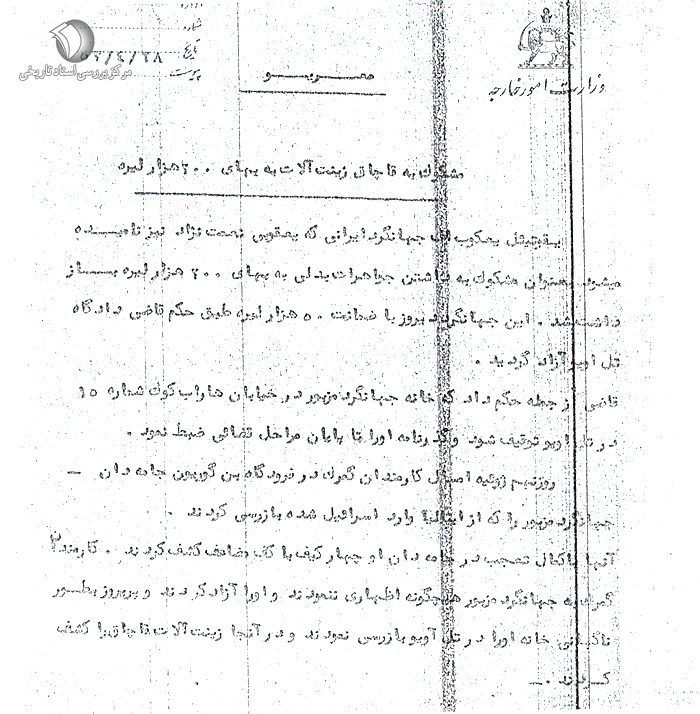 اداره
شماره
تاریخ ۵۲/۴/۲۸
پیوست
مرکز بررسی اسناد تاریخی
وزارت امور خارجه
معریو
مشکوک به قاچاق زینت آلات به بهای ۲۰۰ هزار لیره
یعقوب جهانگرد ایرانی که یعقوبی نعمت نژاد نیز نامیده
میشود بعنوان مشکوک به داشتن جواهرات بدلی به بهای ۲۰۰ هزار لیره باز
داشت شد . این جهانگرد دیروز با ضمانت ۵۰ هزار لیره طبق حکم قاضی دادگاه
تل اویو آزاد گردید .
قاضی از جمله حکم داد که خانه جهانگرد مزبور در خیابان هاراب کوک شماره ۱۵
در تل اویو توقیف شود و گذرنامه اورا تا پایان مراحل قضائی ضبط نمود .
روز نهم ژوئیه امسال کارمندان گمرک در فرودگاه بن گوریون جامه دان -
جهانگرد مزبور را که از ایتالیا وارد اسرائیل شده بازرسی کردند .
آنها باکمال تعجب در جامه دان او چهار کیف با کف مضاعف کشف کردند . کارمندان
گمرک به جهانگرد مزبور هیچگونه اظهاری ننمودند و اورا آزاد کردند و پریروز بطور
ناگهانی خانه اورا در تل آویو بازرسی نمودند و در آنجا زینت آلات قاچاق را کشف
کردند .-